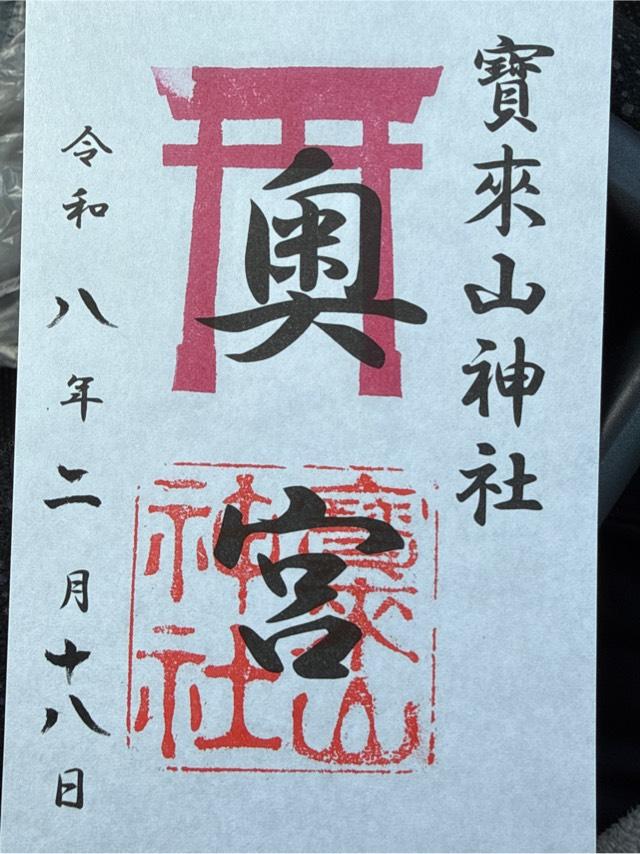 寶來山神社
奥宮
寶來山
神社
令和八年二月十八日